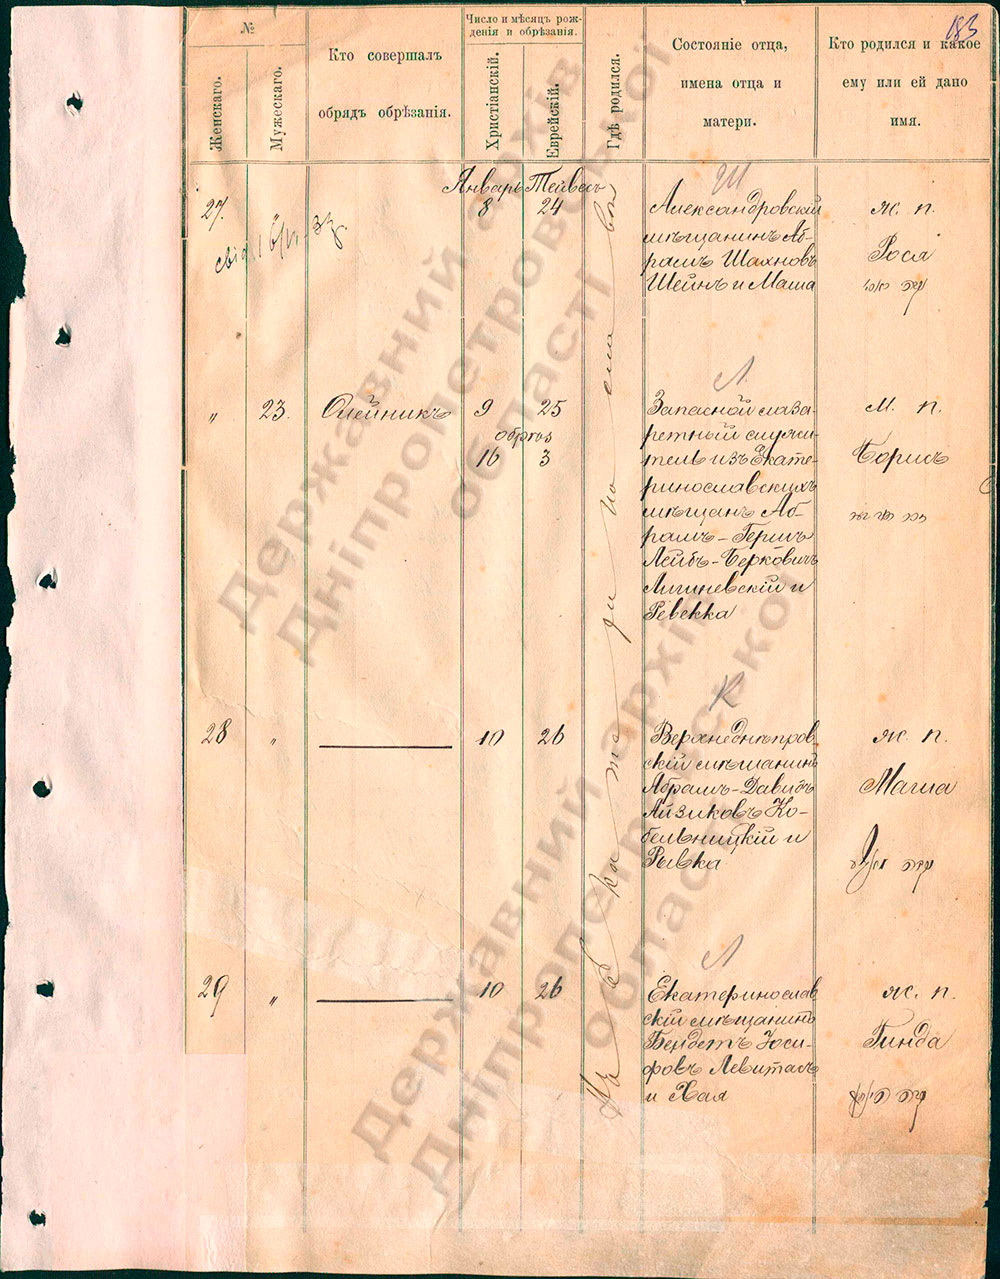 183
№
Женскаго.
Мужескаго.
Кто совершалъ
обрядъ обрѣзанія.
Число и мѣсяцъ рож-
денія и обрѣзанія.
Христіанскій.
Еврейскій.
Гдѣ родился.
Состояніе отца,
имена отца и
матери.
Кто родился и какое
ему или ей дано
имя.
Январь Тейвесъ
Ш
27. " 8 24
Александровскій
мѣщанинъ Аб-
рамъ Шахновъ
Шейнъ и Маша
ж. п.
Рося
Л.
" 23. Олейникъ 9 25
обрѣз
16 3
Запасной лаза-
ретный служи-
тель изъ Екате-
ринославскихъ
мѣщанъ Аб-
рамъ-Герш
Лейбъ-Берковичъ
Лигиневскій и
Ревекка
м. п.
Борисъ
К
28 " 10 26
Верхнеднѣпров
скій мѣщанинъ
Абрамъ-Давидъ
Айзиковъ Ко-
бельницкій и
Рывка
ж. п.
Маша
Л
29 " 10 26
Екатеринослав
скій мѣщанинъ
Бендетъ Іоси-
фовъ Левиталъ
и Хая
ж. п.
Гинда
Державний архів
Дніпропетровської
області
Державний архів
Дніпропетровської
області